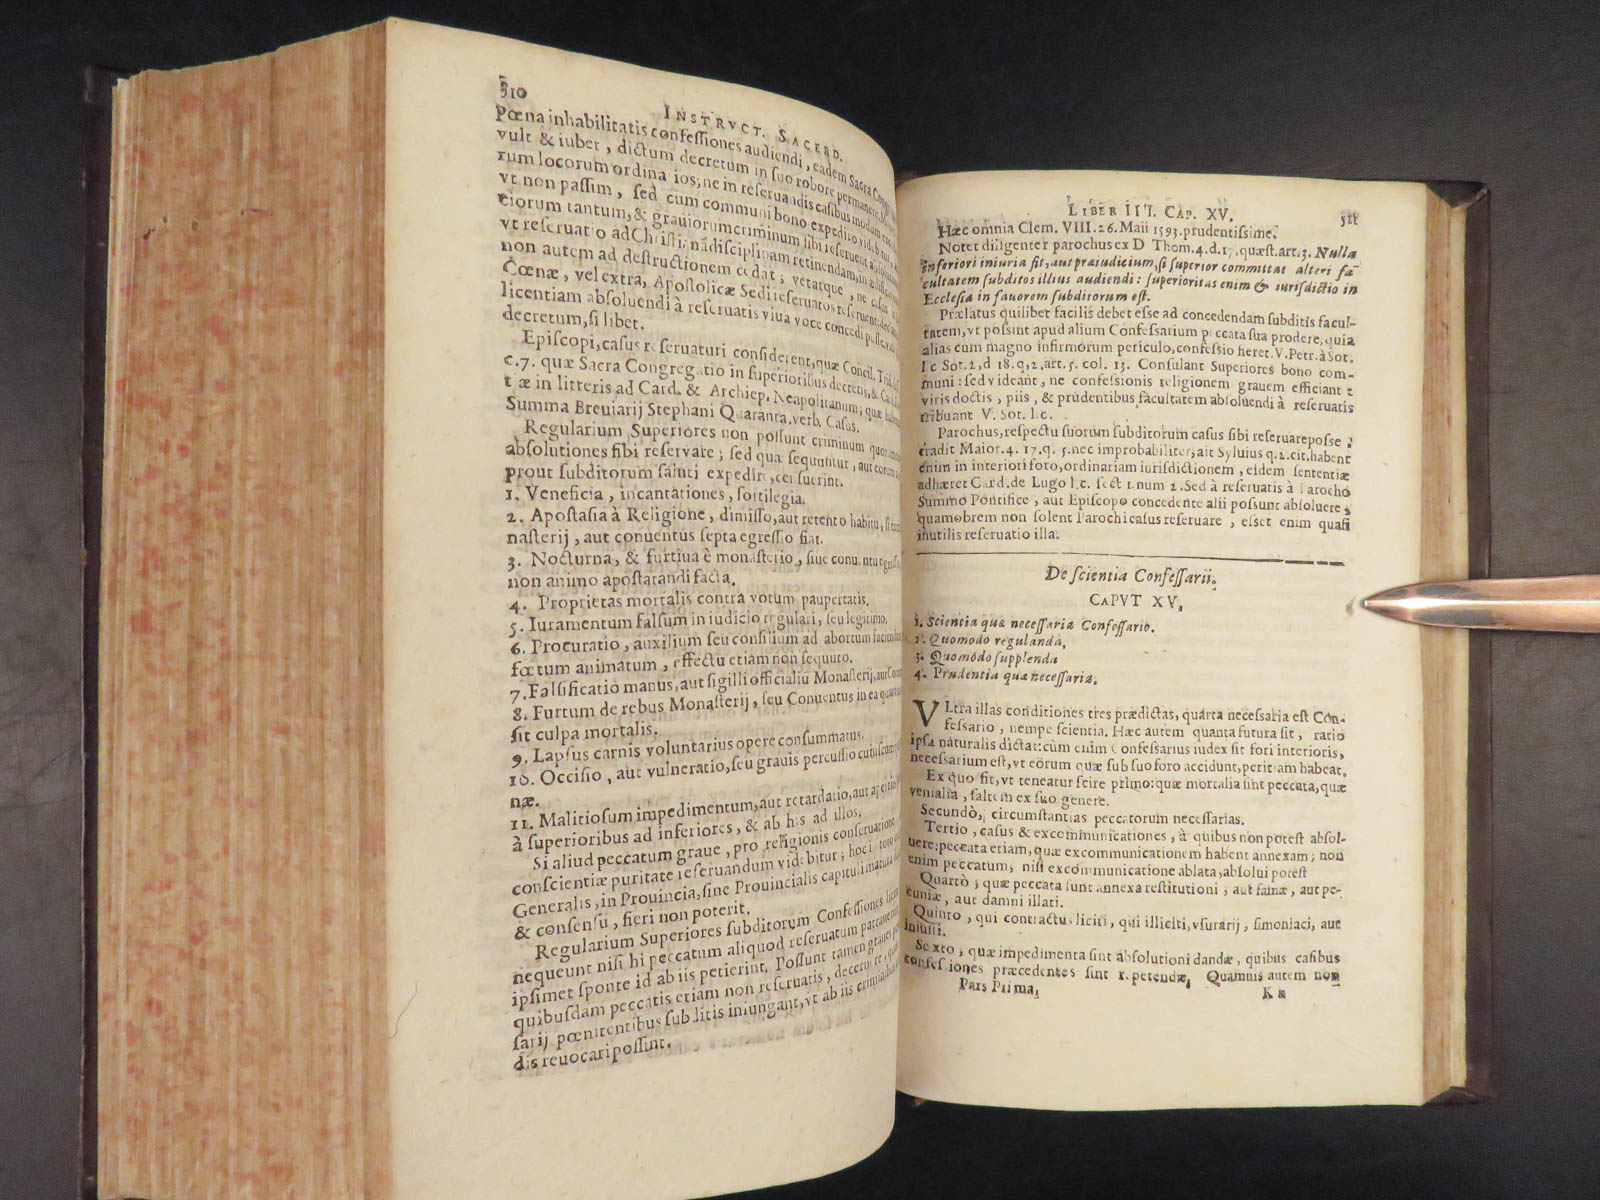 510
INSTRVCT. SACERD.
Pœna inhabilitatis confeſſiones audiendi, eadem Sacra
vult & iubet, dictum decretum in ſuo robore permanere.
rum locorum ordina ios; ne in reſeruandis caſibus modum
vt non paſſim, ſed cum communi bono expedire videbitur,
ciorum tantum, & grauiorum criminum ſibi reſeruent
vt reſeruatio ad Chriſtianā diſciplinam retinendam, in ædificationem
non autem ad deſtructionem cedat; vetatque, ne caſus
Cœnæ, vel extra, Apoſtolicæ Sedi reſeruatos reſeruent;
licentiam abſoluendi à reſeruatis viua voce concedi poſſe,
decretum, ſi libet.
Epiſcopi, caſus reſeruaturi conſiderent, quæ Concil. Trid.
c. 7. quæ Sacra Congregatio in ſuperioribus decretis, &
t æ in litteris ad Card. & Archiep. Neapolitanum; quæ
Summa Breuiarij Stephani Quaranta, verb. Caſus.
Regularium Superiores non poſſunt criminum
abſolutiones ſibi reſervare; ſed qua ſequuntur, aut eorum
prout ſubditorum ſaluti expedire, cenſuerint.
1. Veneficia, incantationes, ſortilegia.
2. Apoſtaſia à Religione, dimiſſo, aut retento habitu, ſi
naſterij, aut conuentus ſepta egreſſio fiat.
3. Nocturna, & furtiua è monaſterio, ſiue conu.ntu
non animo apoſtatandi facta.
4. Proprietas mortalis contra votum paupertatis.
5. Iuramentum falſum in iudicio regulari, ſeu legitimo.
6. Procuratio, auxilium ſeu conſilium ad abortum faciendum
fœtum animatum, effectu etiam non ſequuto.
7. Falſificatio manus, aut ſigilli officialiū Monaſterij, aut
8. Furtum de rebus Monaſterij, ſeu Conuentus in ea
ſit culpa mortalis.
9. Lapſus carnis voluntarius opere conſummatus.
10. Occiſio, aut vulneratio, ſeu grauis percuſſio
næ.
11. Malitioſum impedimentum, aut retardatio, aut
à ſuperioribus ad inferiores, & ab his ad illos.
Si aliud peccatum graue, pro religionis conſeruatione
conſcientiæ puritate reſeruandum videbitur; hoc
Generalis, in Prouincia, ſine Prouincialis capituli matura
& conſenſu, fieri non poterit.
Regularium Superiores ſubditorum Confeſſiones
nequeunt niſi hi peccatum aliquod reſeruatum
ipſimet ſponte id ab iis petierint. Poſſunt tamen graues
quibuſdam peccatis etiam non reſeruatis, decernere,
ſarij pœnitentibus ſubditis iniungant, vt ab iis criminibus
dis reuocari poſſint.
LIBER III. CAP. XV.
511
Hæc omnia Clem. VIII. 26. Maii 1593. prudentiſsime.
Notet diligenter parochus ex D Thom. 4. d. 17. quæſt. art. 3. Nulla
inferiori iniuria fit, aut præiudicium, ſi ſuperior committat alteri fa-
cultatem ſubditos illius audiendi: ſuperioritas enim & iurisdictio in
Eccleſia in fauorem ſubditorum eſt.
Prælatus quilibet facilis debet eſſe ad concedendam ſubditis facul-
tatem, vt poſſint apud alium Confeſſarium peccata ſua prodere, quia
alias cum magno infirmorum periculo, confeſſio fieret. V. Petr. à Sot.
Sot. 2, d 18. q. 2, art. 5. col. 13. Conſulant Superiores bono com-
muni: ſed videant, ne confeſsionis religionem grauem efficiant:
viris doctis, piis, & prudentibus facultatem abſoluendi à reſeruatis
tribuant V. Sot. l. c.
Parochus, reſpectu ſuorum ſubditorum caſus ſibi reſeruare poſſe,
tradit Maior. 4. 17. q. 5. nec improbabiliter, ait Syluius q. 2. cit. habent
enim in interiori foro, ordinariam iurisdictionem, eidem ſententiæ
adhæret Card. de Lugo l. c. ſect 1. num 2. Sed à reſeruatis à Parocho
Summo Pontifice, aut Epiſcopo concedente alii poſſunt abſoluere;
quamobrem non ſolent Parochi caſus reſeruare, eſſet enim quaſi
inutilis reſeruatio illa.
De ſcientia Confeſſarii.
CAPVT XV.
1. Scientia quæ neceſſaria Confeſſario.
2. Quomodo regulanda.
3. Quomodo ſupplenda
4. Prudentia quæ neceſſaria.
VLtra illas conditiones tres prædictas, quarta neceſſaria eſt Con-
feſſario, nempe ſcientia. Hæc autem quanta futura ſit, ratio
ipſa naturalis dictat: cùm enim Confeſſarius iudex ſit fori interioris,
neceſſarium eſt, vt eorum quæ ſub ſuo foro accidunt, peritiam habeat.
Ex quo fit, vt teneatur ſcire primo: quæ mortalia ſint peccata, quæ
venialia, ſaltem ex ſuo genere.
Secundò, circumſtantias peccatorum neceſſarias.
Tertio, caſus & excommunicationes, à quibus non poteſt abſol-
uere: peccata etiam, quæ excommunicationem habent annexam; non
enim peccatum, niſi excommunicatione ablata, abſolui poteſt
Quartò; quæ peccata ſunt annexa reſtitutioni; aut famæ, aut pe-
cuniæ, aut damni illati.
Quinto, qui contractus liciti, qui illiciti, vſurarij, ſimoniaci, aut
iniuſti.
Sexto, quæ impedimenta ſint abſolutioni dandæ, quibus caſibus
confeſsiones præcedentes ſint repetendæ, Quamuis autem non
Pars Prima,